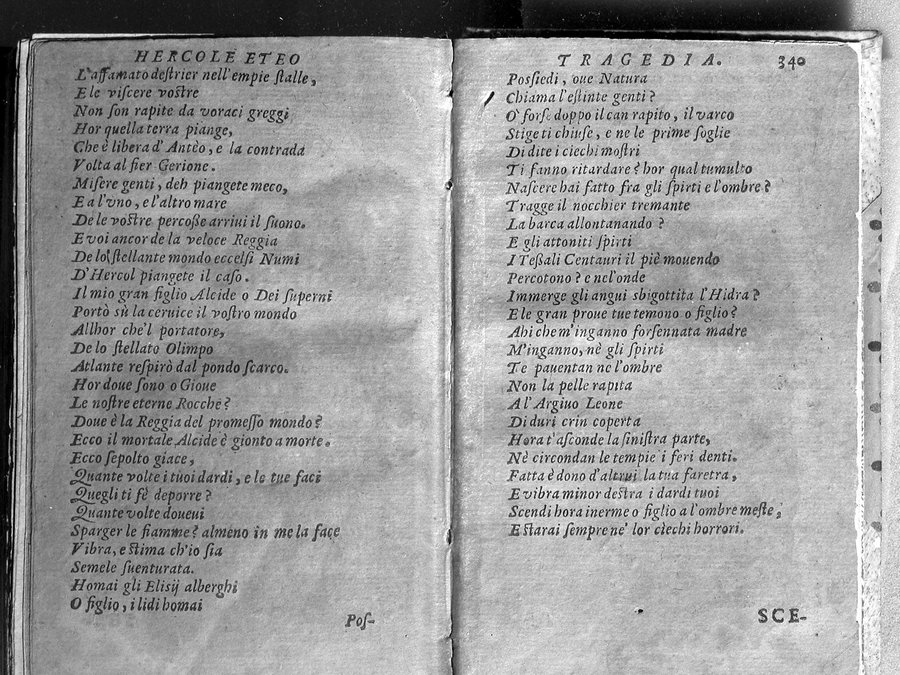 HERCOLE ETEO
L'affamato destrier nell'empie stalle,
E le viscere vostre
Non son rapite da voraci greggi
Hor quella terra piange,
Che è libera d'Anteo, e la contrada
Volta al fier Gerione.
Misere genti, deh piangete meco,
E a l'vno, e l'altro mare
De le vostre percosse arriui il suono.
E voi ancor de la veloce Reggia
De lo stellante mondo eccelsi Numi
D'Hercol piangete il caso.
Il mio gran figlio Alcide o Dei superni
Portò sù la ceruice il vostro mondo
Allhor che'l portatore,
De lo stellato Olimpo
Atlante respirò dal pondo scarco.
Hor doue sono o Gioue
Le nostre eterne Rocche?
Doue è la Reggia del promesso mondo?
Ecco il mortale Alcide è gionto a morte.
Ecco sepolto giace,
Quante volte i tuoi dardi, e le tue faci
Quegli ti fè deporre?
Quante volte doueui
Sparger le fiamme? almeno in me la face
Vibra, e stima ch'io sia
Semele suenturata.
Homai gli Elisij alberghi
O figlio, i lidi homai
Pos-
TRAGEDIA. 340
Possiedi, oue Natura
Chiama l'estinte genti?
O' forse doppo il can rapito, il varco
Stige ti chiuse, e ne le prime soglie
Di dite i ciechi mostri
Ti fanno ritardare? hor qual tumulto
Nascere hai fatto fra gli spirti e l'ombre?
Tragge il nocchier tremante
La barca allontanando?
E gli attoniti spirti
I Tessali Centauri il piè mouendo
Percotono? e nel'onde
Immerge gli angui sbigottita l'Hidra?
E le gran proue tue temono o figlio?
Ahi che m'inganno forsennata madre
M'inganno, nè gli spirti
Te pauentan ne l'ombre
Non la pelle rapita
A l'Argiuo Leone
Di duri crin coperta
Hora t'asconde la sinistra parte,
Nè circondan le tempie i feri denti.
Fatta è dono d'altrui la tua faretra,
E vibra minor destra i dardi tuoi
Scendi hora inerme o figlio a l'ombre meste,
E starai sempre ne' lor ciechi horrori.
SCE-